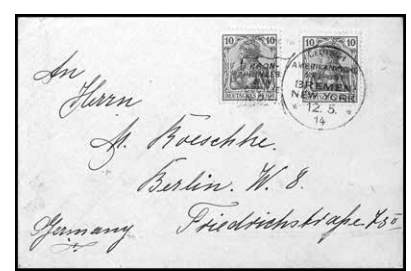 10 10 10 10
DEUTSCHES REICH
BREMEN
NEW YORK
* 12. 5. *
14
An
Herrn
M. Koeschke.
Berlin. W. 8.
Germany Friedrichstraße 75